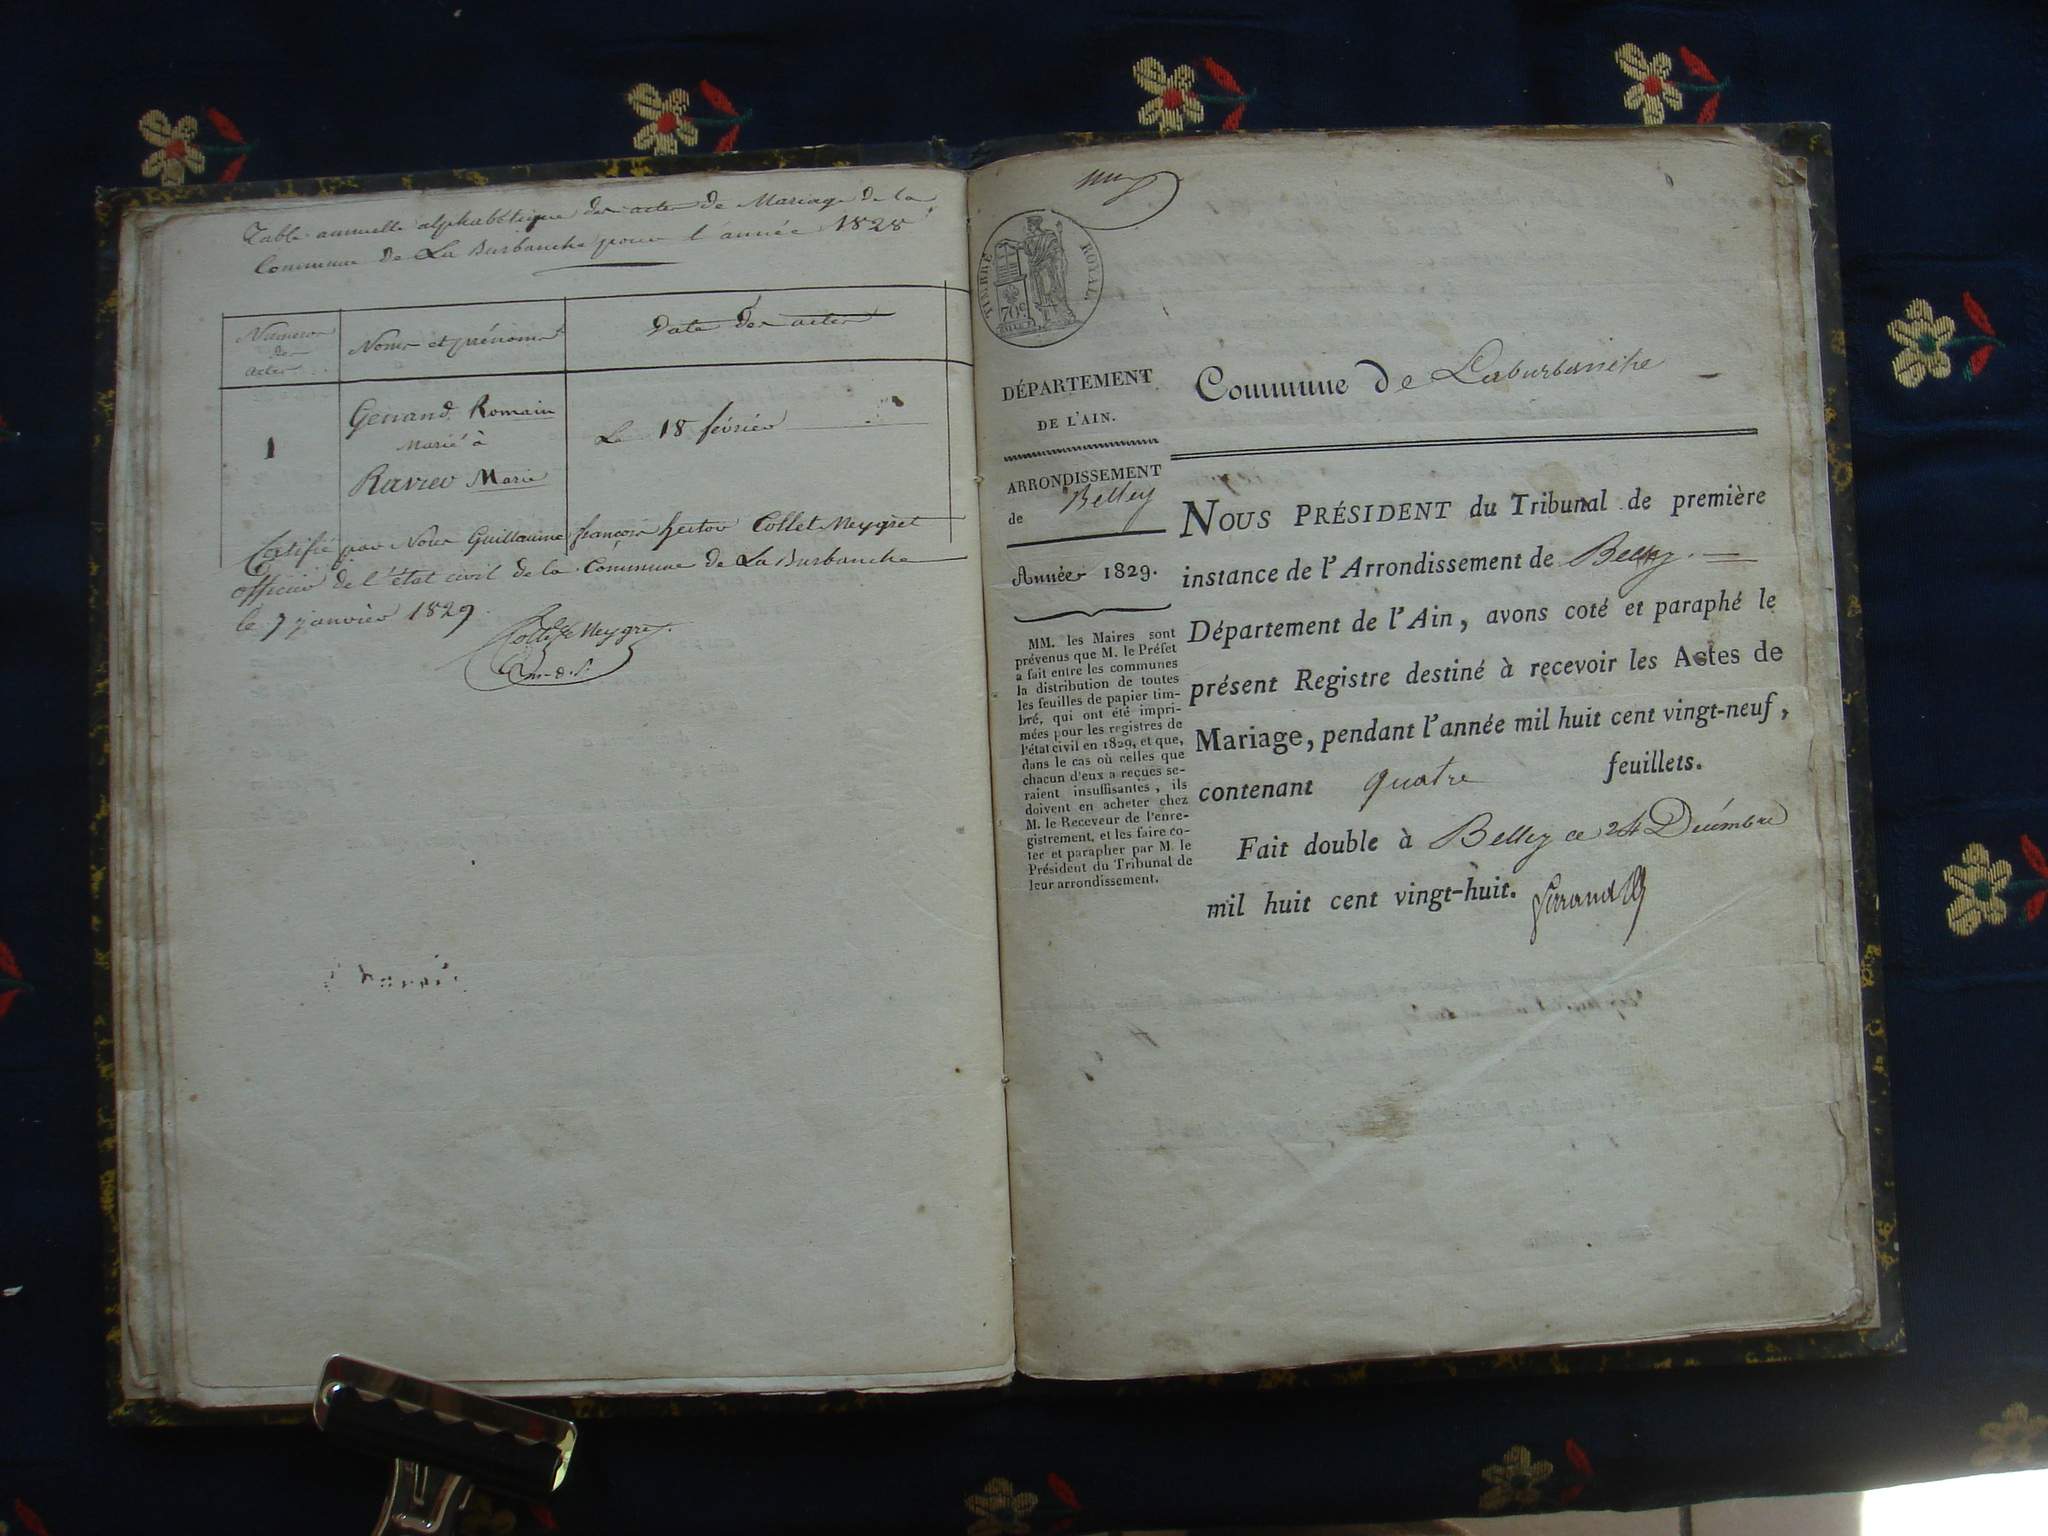 Table annuelle alphabétique des actes de Mariage de la
Commune de La Burbanche pour l'année 1828
Numéros
des
actes
Noms et prénoms
Date des actes
1
Gerrand Romain
Marié à
Ravier Marie
Le 18 février
Certifié par Nous Guillaume françois hector Collet Meygret
officier de l'état civil de la Commune de La Burbanche
le 7 janvier 1829
Collet Meygret
TIMBRE ROYAL
70 c.
DÉPARTEMENT
DE L'AIN.
ARRONDISSEMENT
de Belley
Année 1829.
MM. les Maires sont
prévenus que M. le Préfet
a fait entre les communes
la distribution de toutes
les feuilles de papier tim-
bré, qui ont été impri-
mées pour les registres de
l'état civil en 1829, et que,
dans le cas où celles que
chacun d'eux a reçues se-
raient insuffisantes, ils
doivent en acheter chez
M. le Receveur de l'enre-
gistrement, et les faire co-
ter et parapher par M. le
Président du Tribunal de
leur arrondissement.
Commune de Laburbanche
NOUS PRÉSIDENT du Tribunal de première
instance de l'Arrondissement de Belley
Département de l'Ain, avons coté et paraphé le
présent Registre destiné à recevoir les Actes de
Mariage, pendant l'année mil huit cent vingt-neuf,
contenant quatre feuillets.
Fait double à Belley ce 24 Décembre
mil huit cent vingt-huit.